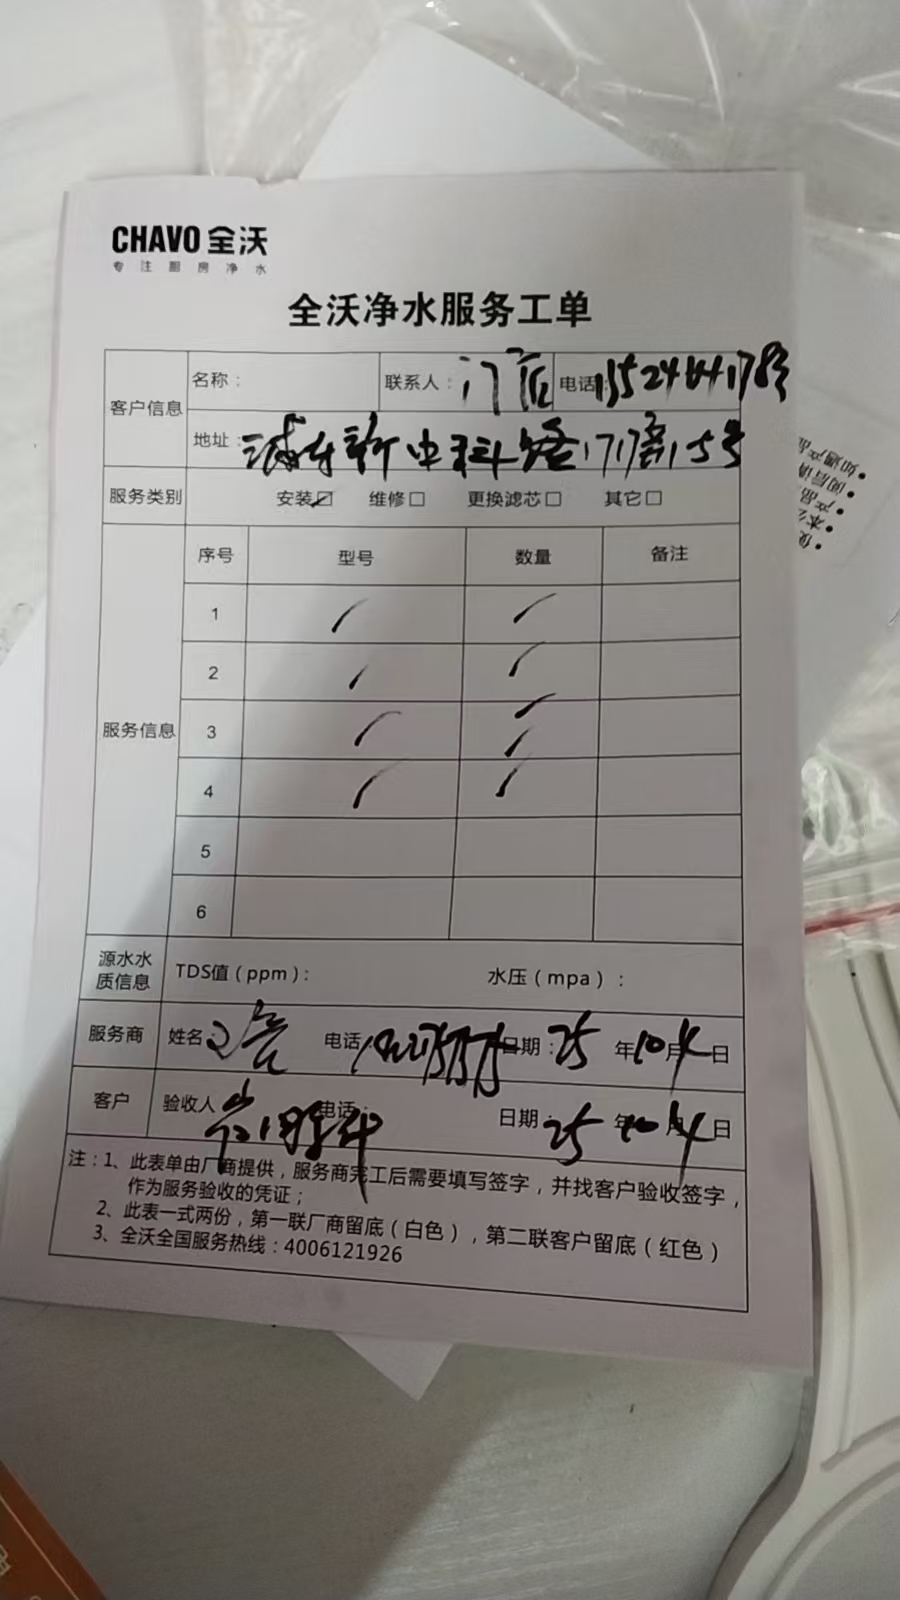 CHAVO 全沃
专注厨房净水
全沃净水服务工单
客户信息
名称：
联系人：门店
电话：
地址：
服务类别
安装☑ 维修□ 更换滤芯□ 其它□
服务信息
序号 型号 数量 备注
1
2
3
4
5
6
源水水质信息
TDS值（ppm）：
水压（mpa）：
服务商 姓名： 电话： 日期：25年10月4日
客户 验收人 电话： 日期：25年10月4日
注：1、此表单由厂商提供，服务商完工后需要填写签字，并找客户验收签字，
作为服务验收的凭证；
2、此表一式两份，第一联厂商留底（白色），第二联客户留底（红色）
3、全沃全国服务热线：4006121926